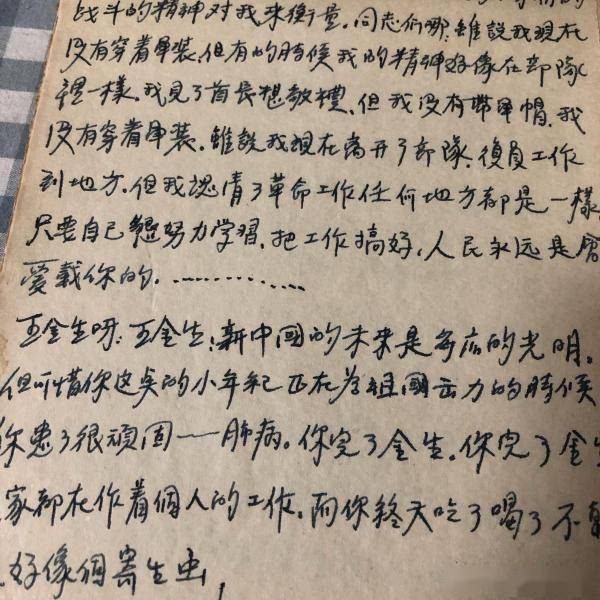 战斗的精神对我来衡量。同志们哪,雖說我現在
没有穿着軍装,但有的时候我的精神好像在部隊
裡一樣。我見了首長想敬禮,但我没有带軍帽,我
没有穿着軍装。雖說我現在离开了部隊,復員工作
到地方。但我認清了革命工作任何地方都是一樣,
只要自己努力学習,把工作搞好,人民永远是會
爱载你的.............
王金生呀:王金生:新中國的未来是多広的光明。
但可惜你这吴的小年紀正在为祖國出力的時候
你患了很頑固——肺病。你完了金生,你完了金生
家都在作着個人的工作,而你終天吃了喝了不
好像個寄生虫,